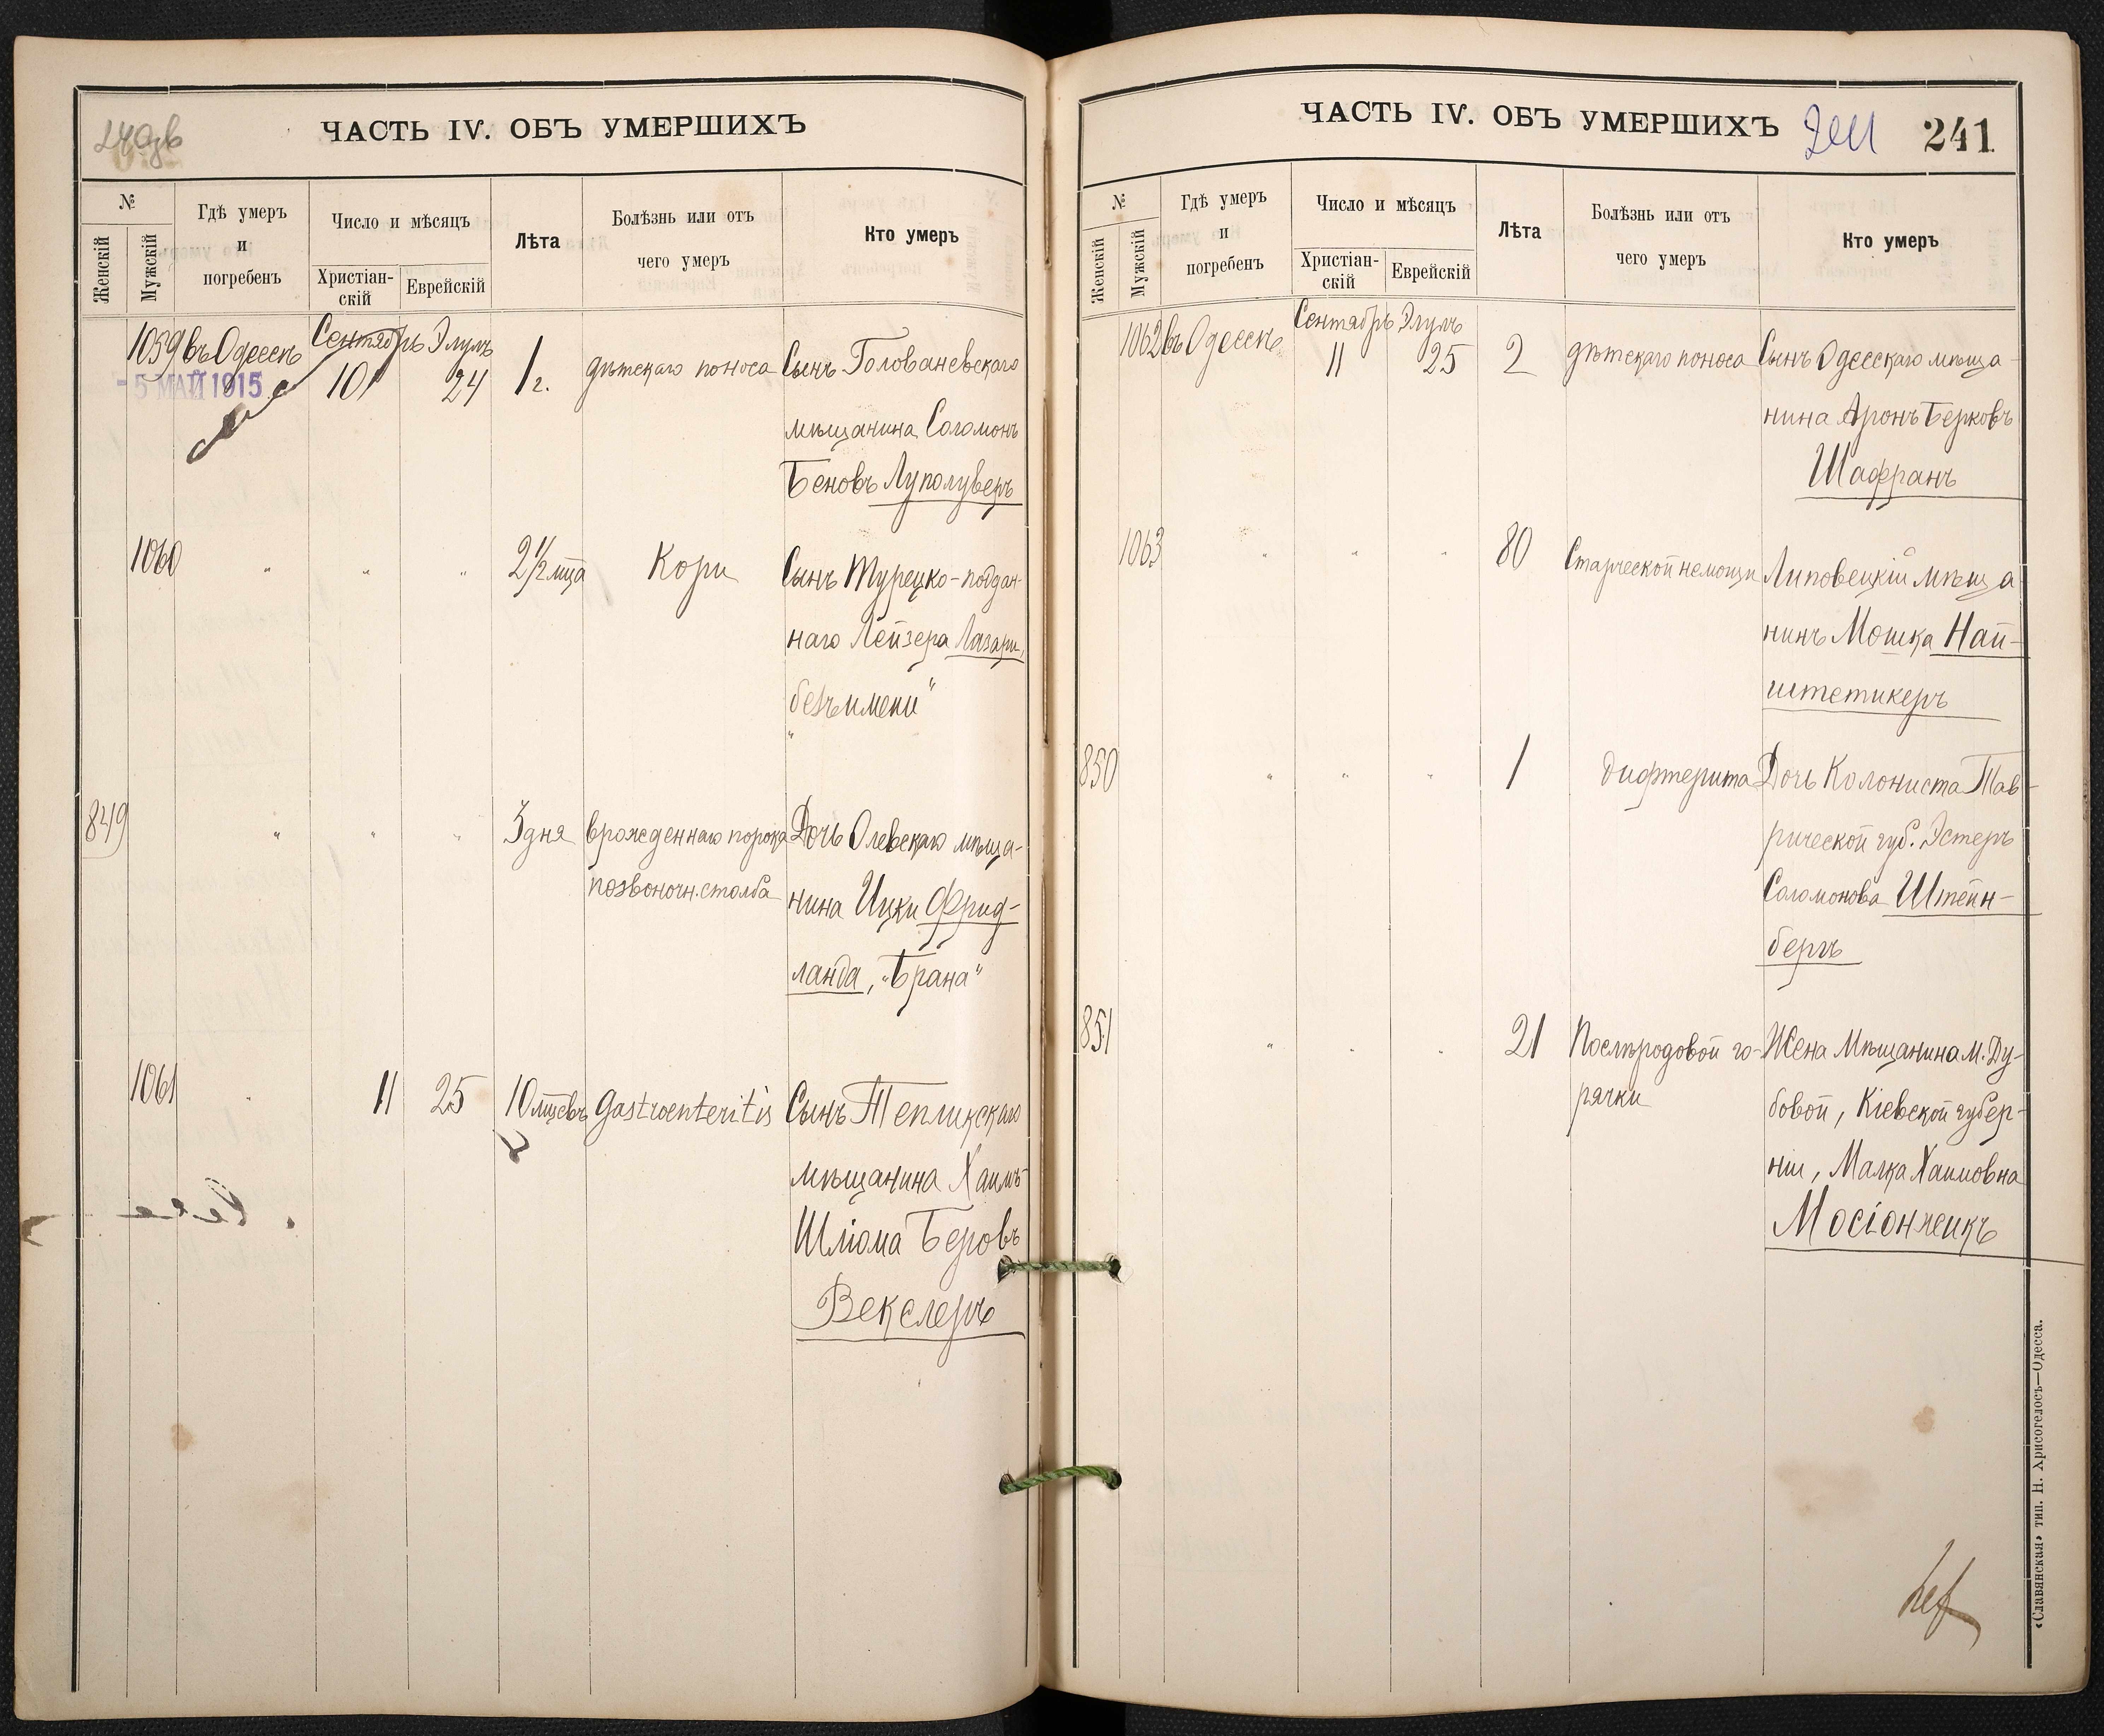 240об
ЧАСТЬ IV. ОБЪ УМЕРШИХЪ
№
Женскій
Мужскій
Гдѣ умеръ
и
погребенъ
Число и мѣсяцъ
Христіан-
скій
Еврейскій
Лѣта
Болѣзнь или отъ
чего умеръ
Кто умеръ
1059 въ Одессѣ Сентябрь Элулъ
10 24 1 г. дѣтскаго поноса Сынъ Голованевскаго
- 5 МАЙ 1915
мѣщанина Соломонъ
Беновъ Луполуверъ
1060 " " " 2½ мца Кори Сынъ Турецко-поддан-
наго Лейзера Лазари,
безъ имени"
849 " " " 3 дня врожденнаго порока Дочь Олевскаго мѣща-
позвоночн. столба
нина Ицки Фрид-
ланда, "Брана"
1061 " 11 25 10 мцевъ Gastroenteritis Сынъ Тепликскаго
мѣщанина Хаимъ
Шліома Беровъ
Векслеръ
ЧАСТЬ IV. ОБЪ УМЕРШИХЪ
241
241
№
Женскій
Мужскій
Гдѣ умеръ
и
погребенъ
Число и мѣсяцъ
Христіан-
скій
Еврейскій
Лѣта
Болѣзнь или отъ
чего умеръ
Кто умеръ
1062 въ Одессѣ Сентябрь Элулъ
11 25 2 дѣтскаго поноса Сынъ Одесскаго мѣща-
нина Аронъ Берковъ
Шафранъ
1063 " " " 80 Старческой немощи Липовецкій мѣща
нинъ Мошка Най-
штетикеръ
850 " " " 1 дифтерита Дочь Колониста Тав-
рической губ. Эстеръ
Соломонова Штейн-
бергъ
851 " " " 21 Послѣродовой го- Жена Мѣщанина м. Ду-
рячки
бовой, Кіевской губер-
ніи, Малка Хаимовна
Мосіонжникъ
«Славянская» тип. Н. Хрисогелосъ—Одесса.